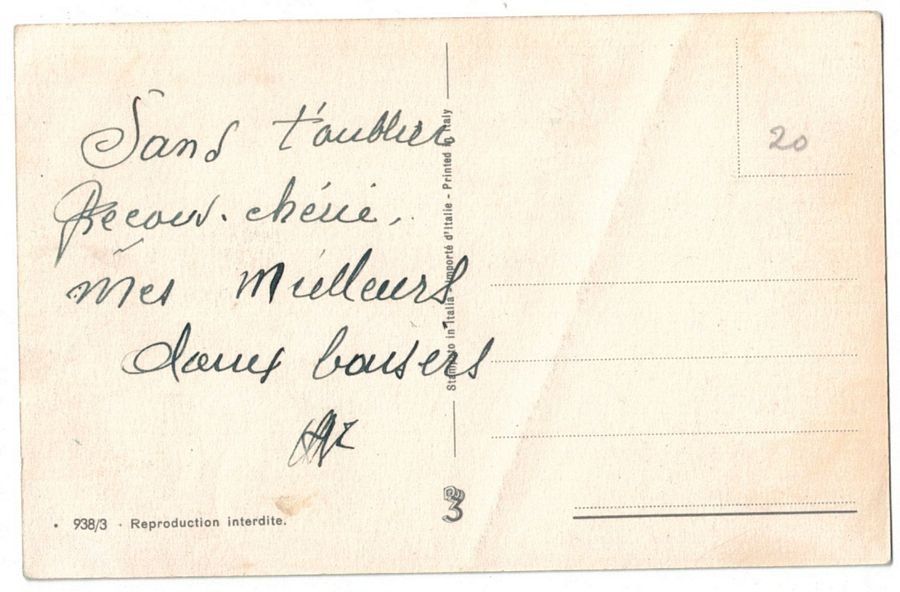 Sans t'oublier
Reçois chérie,
Mes Meilleurs
doux baisers
Stampato in Italia - Importé d'Italie - Printed in Italy
20
938/3 · Reproduction interdite.
3